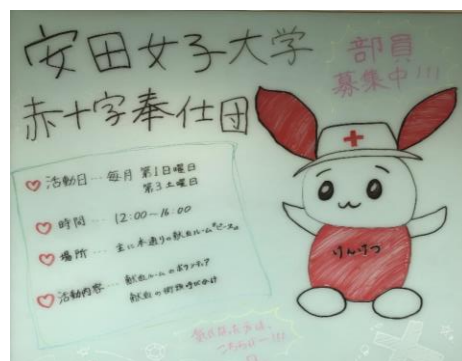 安田女子大学
赤十字奉仕団
部員
募集中!!!
♡活動日…毎月 第1日曜日
第3土曜日
♡時間… 12:00~16:00
♡場所… 主に本通りの献血ルーム"ピース"
♡活動内容… 献血ルームのボランティア
献血の街頭呼びかけ
けんけつ
気になった方は、
こちらへー!!!